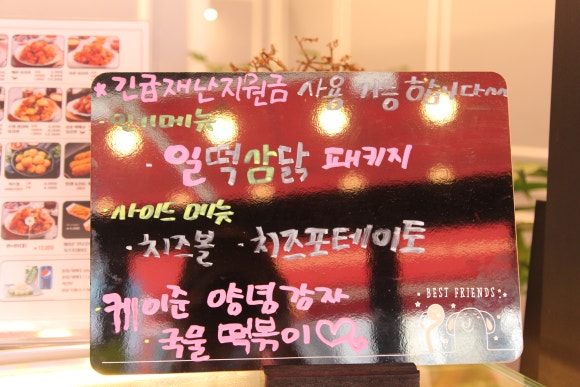 *긴급재난지원금 사용 가능합니다^^
인기메뉴
· 일떡삼닭 패키지
사이드 메뉴
· 치즈볼 · 치즈포테이토
케이준 양념감자
국물 떡볶이♡
BEST FRIENDS